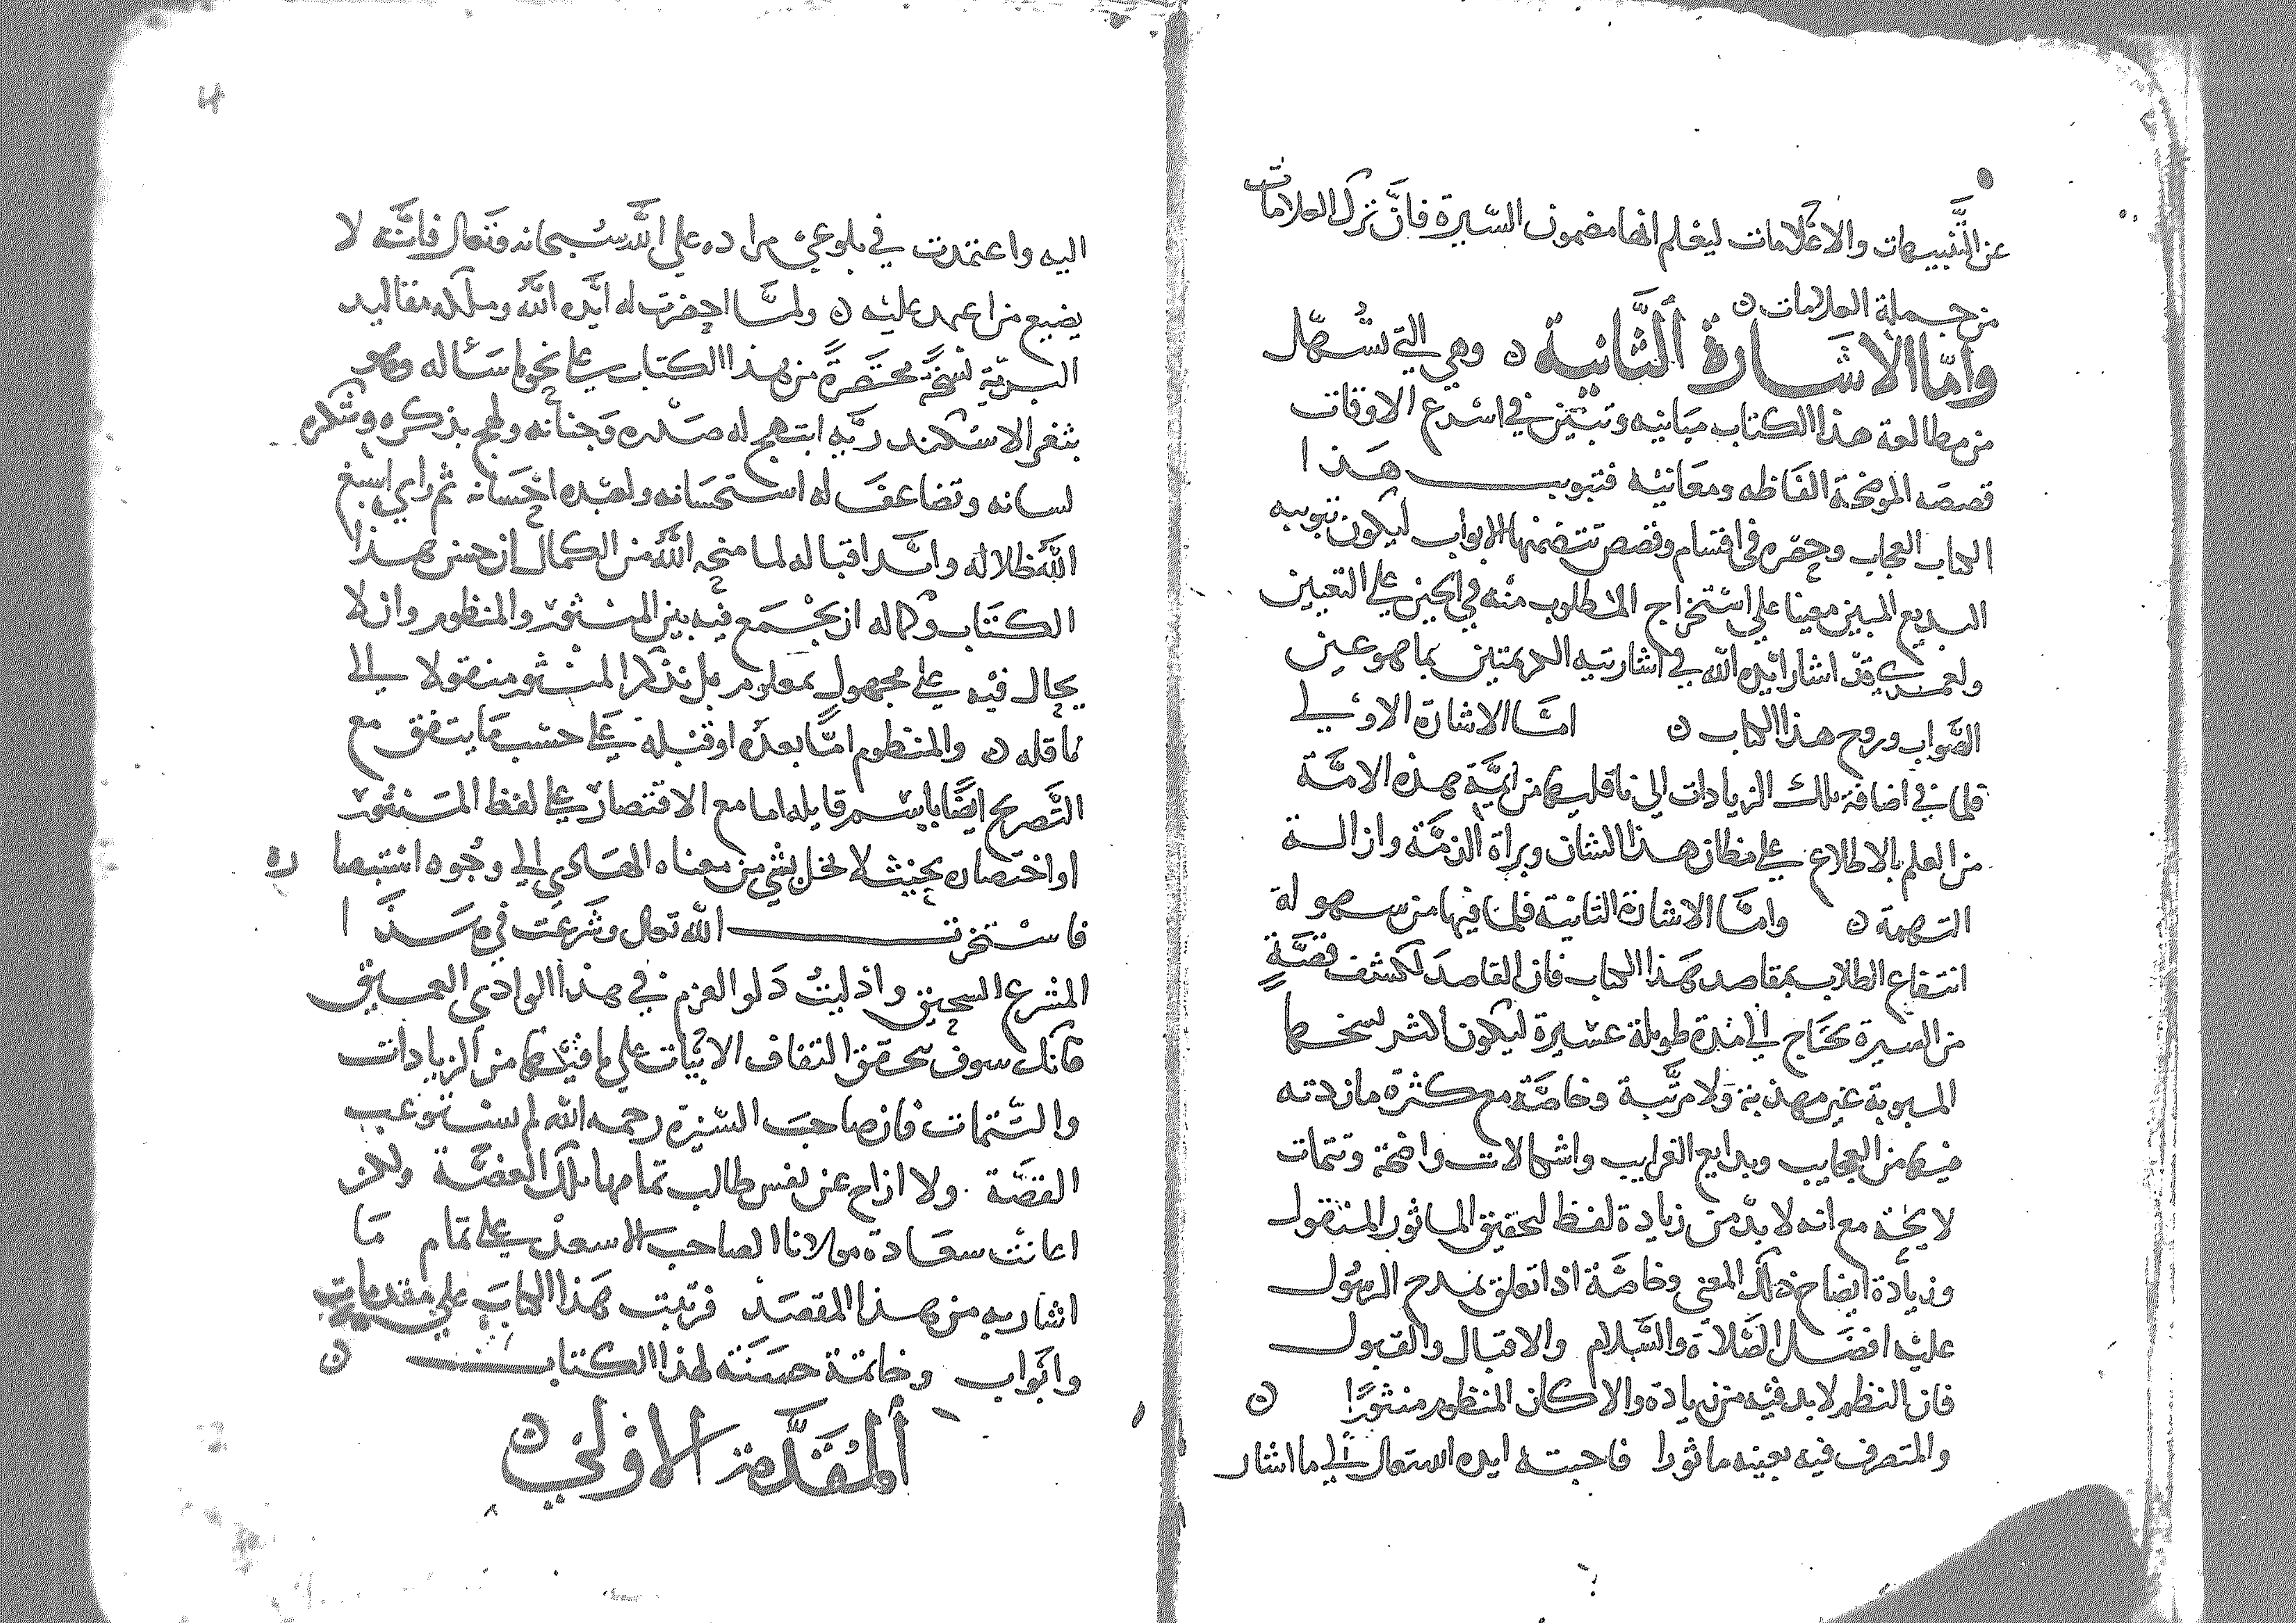 عن التنبيهات والاعلامات ليعلم انها مضمون السيرة فان ترك العلامات
من جملة العلامات
واما الاشارة الثانية وهي التي تسهل
من مطالعة هذا الكتاب مبانيه وتبين في اسرع الاوقات
قصصه الموضحة الفاظه ومعانيه فتبويب هذا
الكتاب العجاب وحصره في اقسام وقصص تتضمنها الابواب ليكون تبويبه
البديع المبين معينا على استخراج المطلوب منه في الحين على التعيين
ولعمري قد اشار ايده الله في اشارتيه الكريمتين بما هو عين
الصواب وروح هذا الكتاب اما الاشارة الاولى
فلما في اضافة تلك الزيادات الى ناقليها من ايمة هذه الامة
من العلم بالاطلاع على مظان هذا الشان وبراة الذمة وازالة
التهمة واما الاشارة الثانية فلما فيها من سهولة
انتفاع الطلاب بمقاصد هذا الكتاب فان القاصد لكشف قصة
من السيرة يحتاج الى مدة طويلة عسيرة ليكون اكثر نسخها
المبوبة غير مهذبة ولا مرتبة وخاصة مع كثرة ما زدته
فيها من العجايب وبدايع الغرايب واشكالات واضحة وتتمات
لايحة مع انه لا بد من زيادة لفظ لتحقيق الماثور المنقول
وزيادة ايضاح ذلك المعنى وخاصة اذا تعلق بمدح الرسول
عليه افضل الصلاة والسلام والاقبال والقبول
فان النظم لا بد فيه من زيادة والا كان المنظوم منثورا
والمتصرف فيه بعينه ماثورا فاجبته ايده الله تعالى الى ما اشار
اليه واعتمدت في بلوغي مراده على الله سبحانه وتعالى فانه لا
يضيع من اعتمد عليه ولما احضرت له ايده الله وملكه مقاليد
البرية نسخة مختصرة من هذا الكتاب على نحو ما ساله وهو
بثغر الاسكندرية ابتهج له صدره وجنانه ولهج بذكره وشكره
لسانه وتضاعف له استحسانه ولعبده احسانه ثم راى اسبغ
الله ظلاله وابد اقباله لما منحه الله من الكمال ان حسن هذا
الكتاب وكماله ان يجمع فيه بين المنثور والمنظوم وان لا
يحال فيه على مجهول بمعلوم بل نذكر المنثور منقولا الى
ناقله والمنظوم اما بعده او قبله على حسب ما يتفق مع
التصريح ايضا باسم قايله اما مع الاقتصار على لفظ المنثور
او اختصاره بحيث لا يخل بشي من معناه الهادي الى وجوه استبصاره
فاستخرت الله تعالى وشرعت في هذا
المشرع السحيق وادليت دلو العزم في هذا الوادي العميق
فانك سوف تحقق التفاف الابيات على ما فيها من الزيادات
والتتمات فان صاحب السيرة رحمه الله لم يستوعب
القصة ولا ازاح عن نفس طالب تمامها تلك الغصة ولكن
اعانت سعادة مولانا الصاحب الاسعد على تمام ما
اشار به من هذا المقصد فرتبت هذا الكتاب على مقدمات
وابواب وخاتمة حسنة لهذا الكتاب
المقدمة الاولى